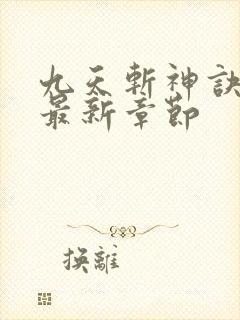 九天斬神訣
最新章節
換離